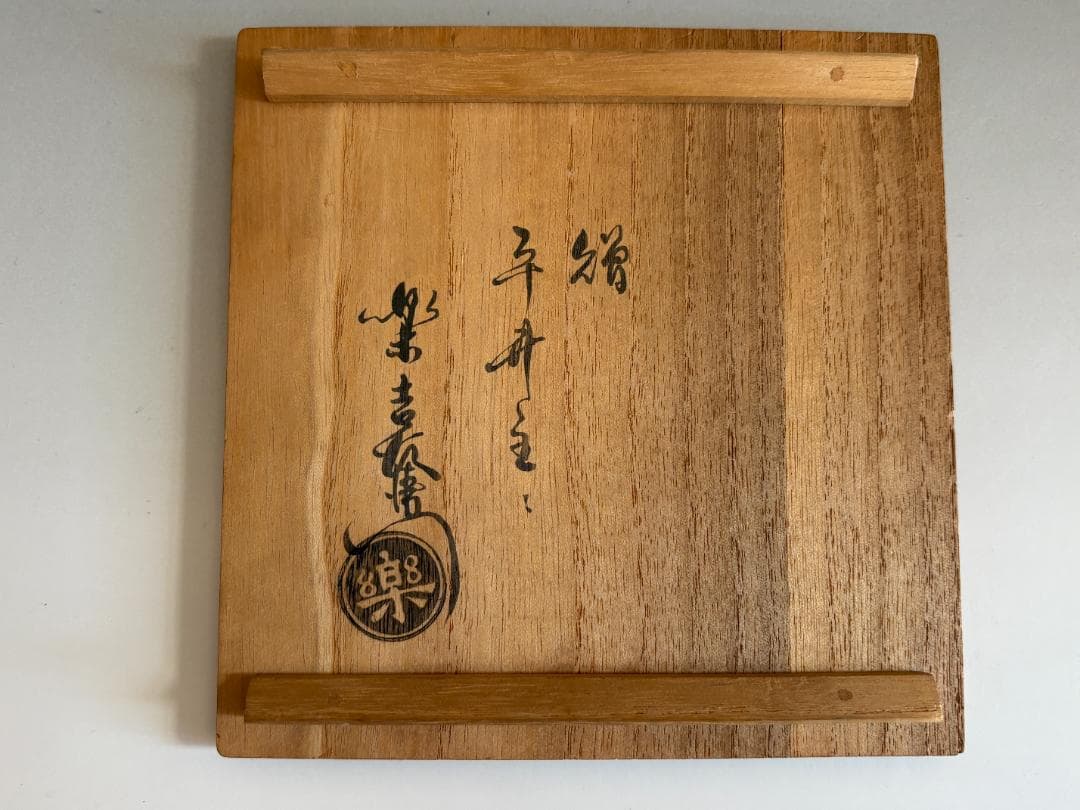 贈
平井主〻
樂吉左衛門
樂